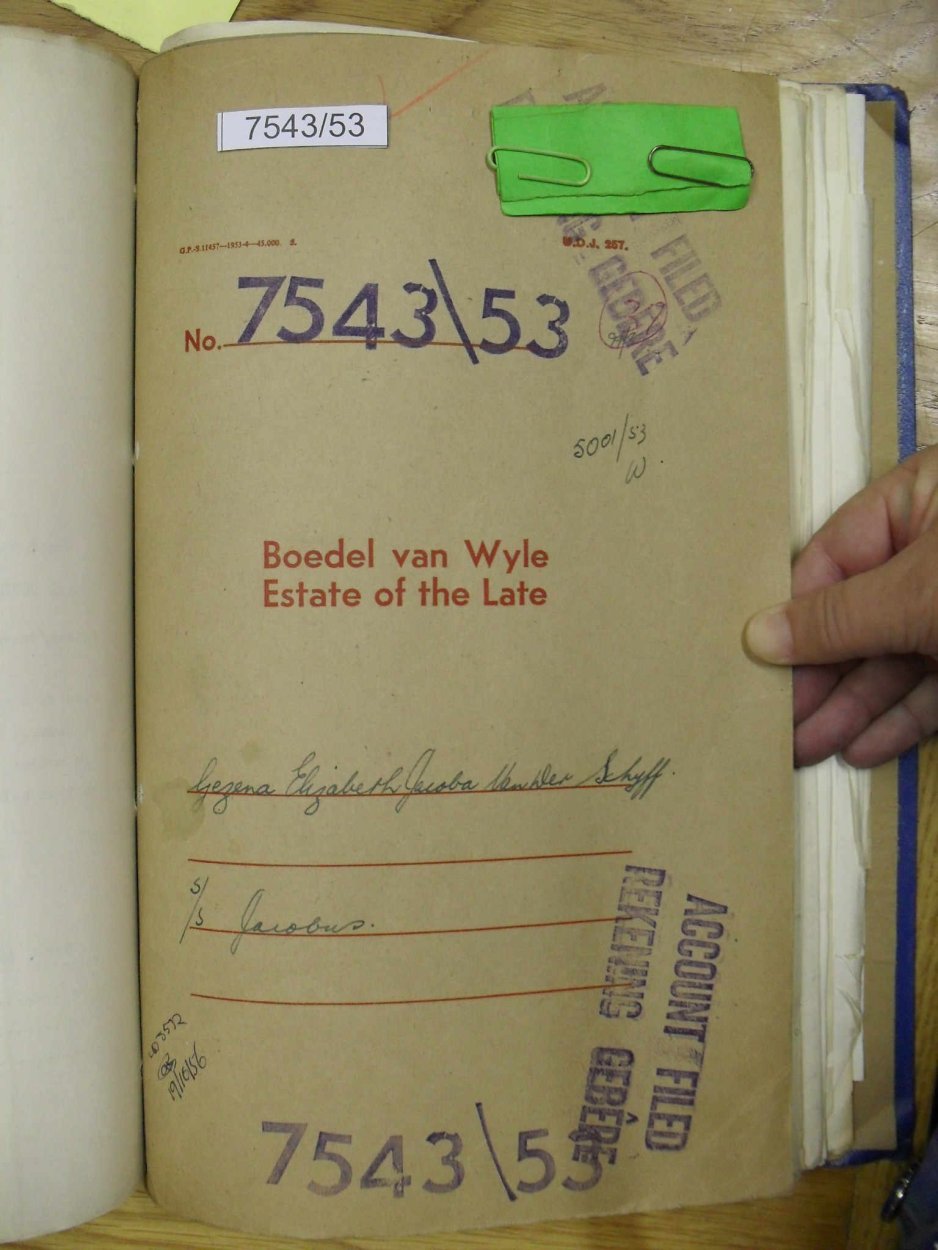 7543/53
ACCOUNT FILED
REKENING GEBÊRE
G.P.-S.11457—1953-4—45.000. S.
U.D.J. 257.
No. 7543\53
5001/53
W.
Boedel van Wyle
Estate of the Late
Gezena Elizabeth Jacoba Van Der Schyff.
S/S Jacobus.
19/10/56
ACCOUNT FILED
REKENING GEBÊRE
7543\53